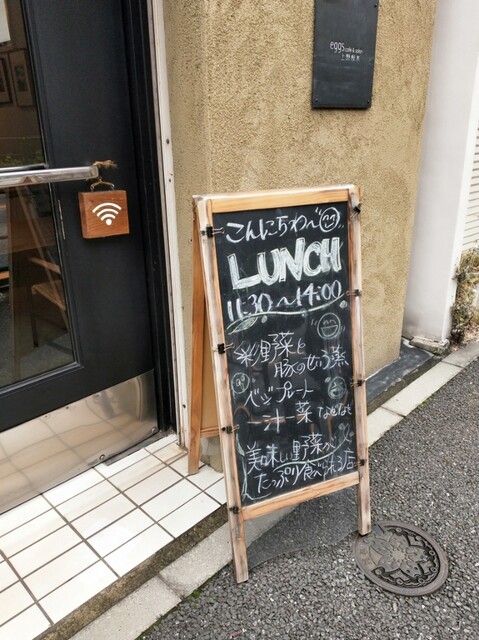 eggs cafe &
上野桜木
こんにちわ〜
LUNCH
11:30〜14:00
彩り野菜と
豚のせいろ蒸
ベジプレート
一汁一菜 などなど
美味しい野菜が
たっぷり食べられる店